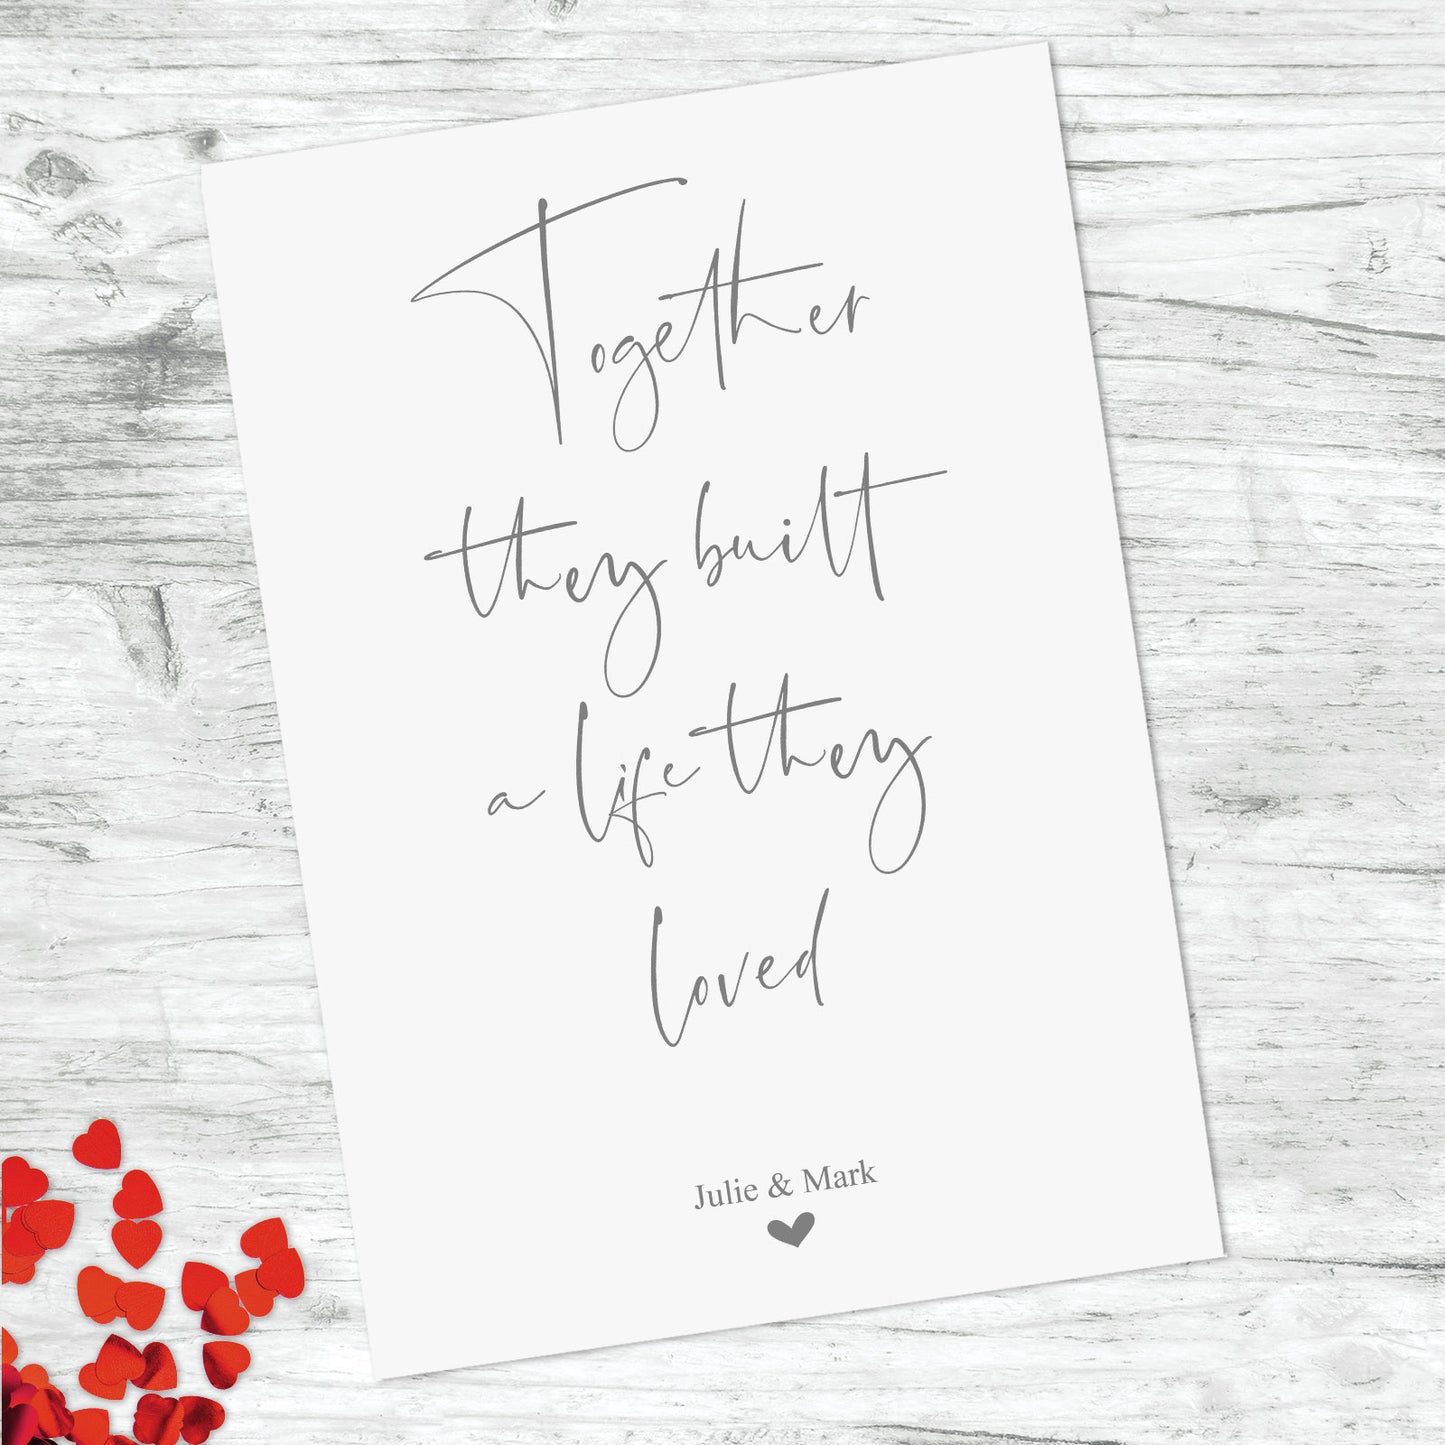 Together
they built
a life they
loved
Julie & Mark